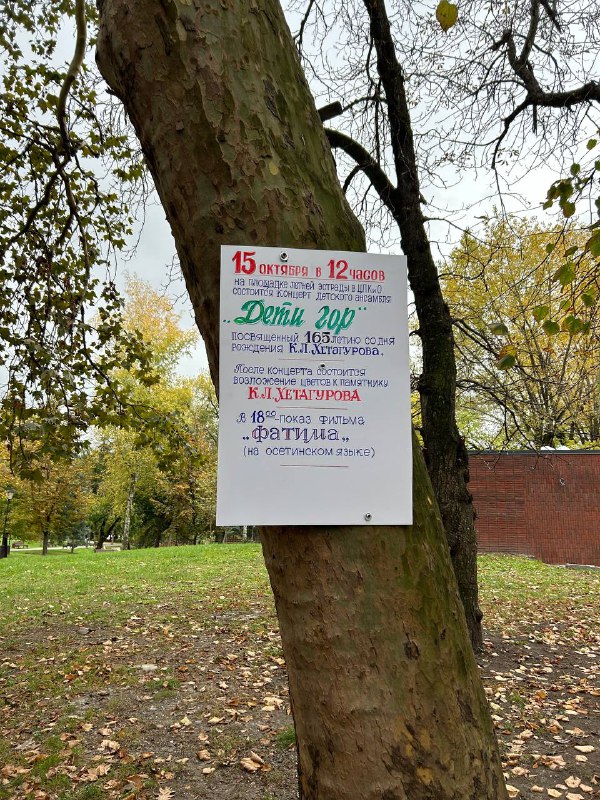 15 октября в 12 часов
на площадке летней эстрады в ЦПКиО
состоится концерт детского ансамбля
„Дети гор"
посвященный 165летию со дня
рождения К.Л.Хетагурова.
После концерта состоится
возложение цветов к памятнику
К.Л.Хетагурова
В 18⁰⁰-показ фильма
„Фатима„
(на осетинском языке)